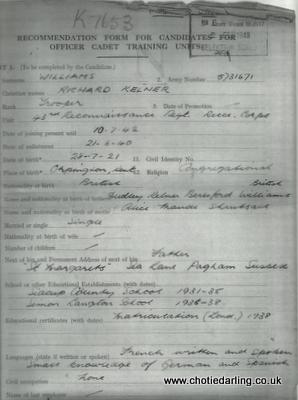 K-7653
RECOMMENDATION FORM FOR CANDIDATES FOR
OFFICER CADET TRAINING UNITS
(To be completed by the Candidate.)
WILLIAMS 2. Army Number 5731671
Christian names RICHARD KELNER
Rank Trooper 5. Date of Promotion
Unit 43rd Reconnaissance Regt. Recce. Corps
Date of joining present unit 10-7-42
Date of enlistment 21-6-40
Date of birth 28-7-21 11. Civil Identity No.
Place of birth Orpington, Kent 13. Religion Congregational
Nationality at birth British
Name and nationality at birth of father Dudley Kelner Beresford Williams British
Name and nationality at birth of mother Alice Maude
Married or single Single
Nationality at birth of wife
Number of children
Next of kin Father
Name and Permanent Address of next of kin
St Margarets Sea Lane Pagham Sussex
School or other Educational Establishments (with dates)
Sidcup County School 1931-35
Simon Langton School 1935-38
Educational certificates (with dates) Matriculation (Lond.) 1938
Languages (state if written or spoken) French written and spoken
Small knowledge of German and Spanish
Civil occupation None
Name of last employer
www.chotiedarling.co.uk